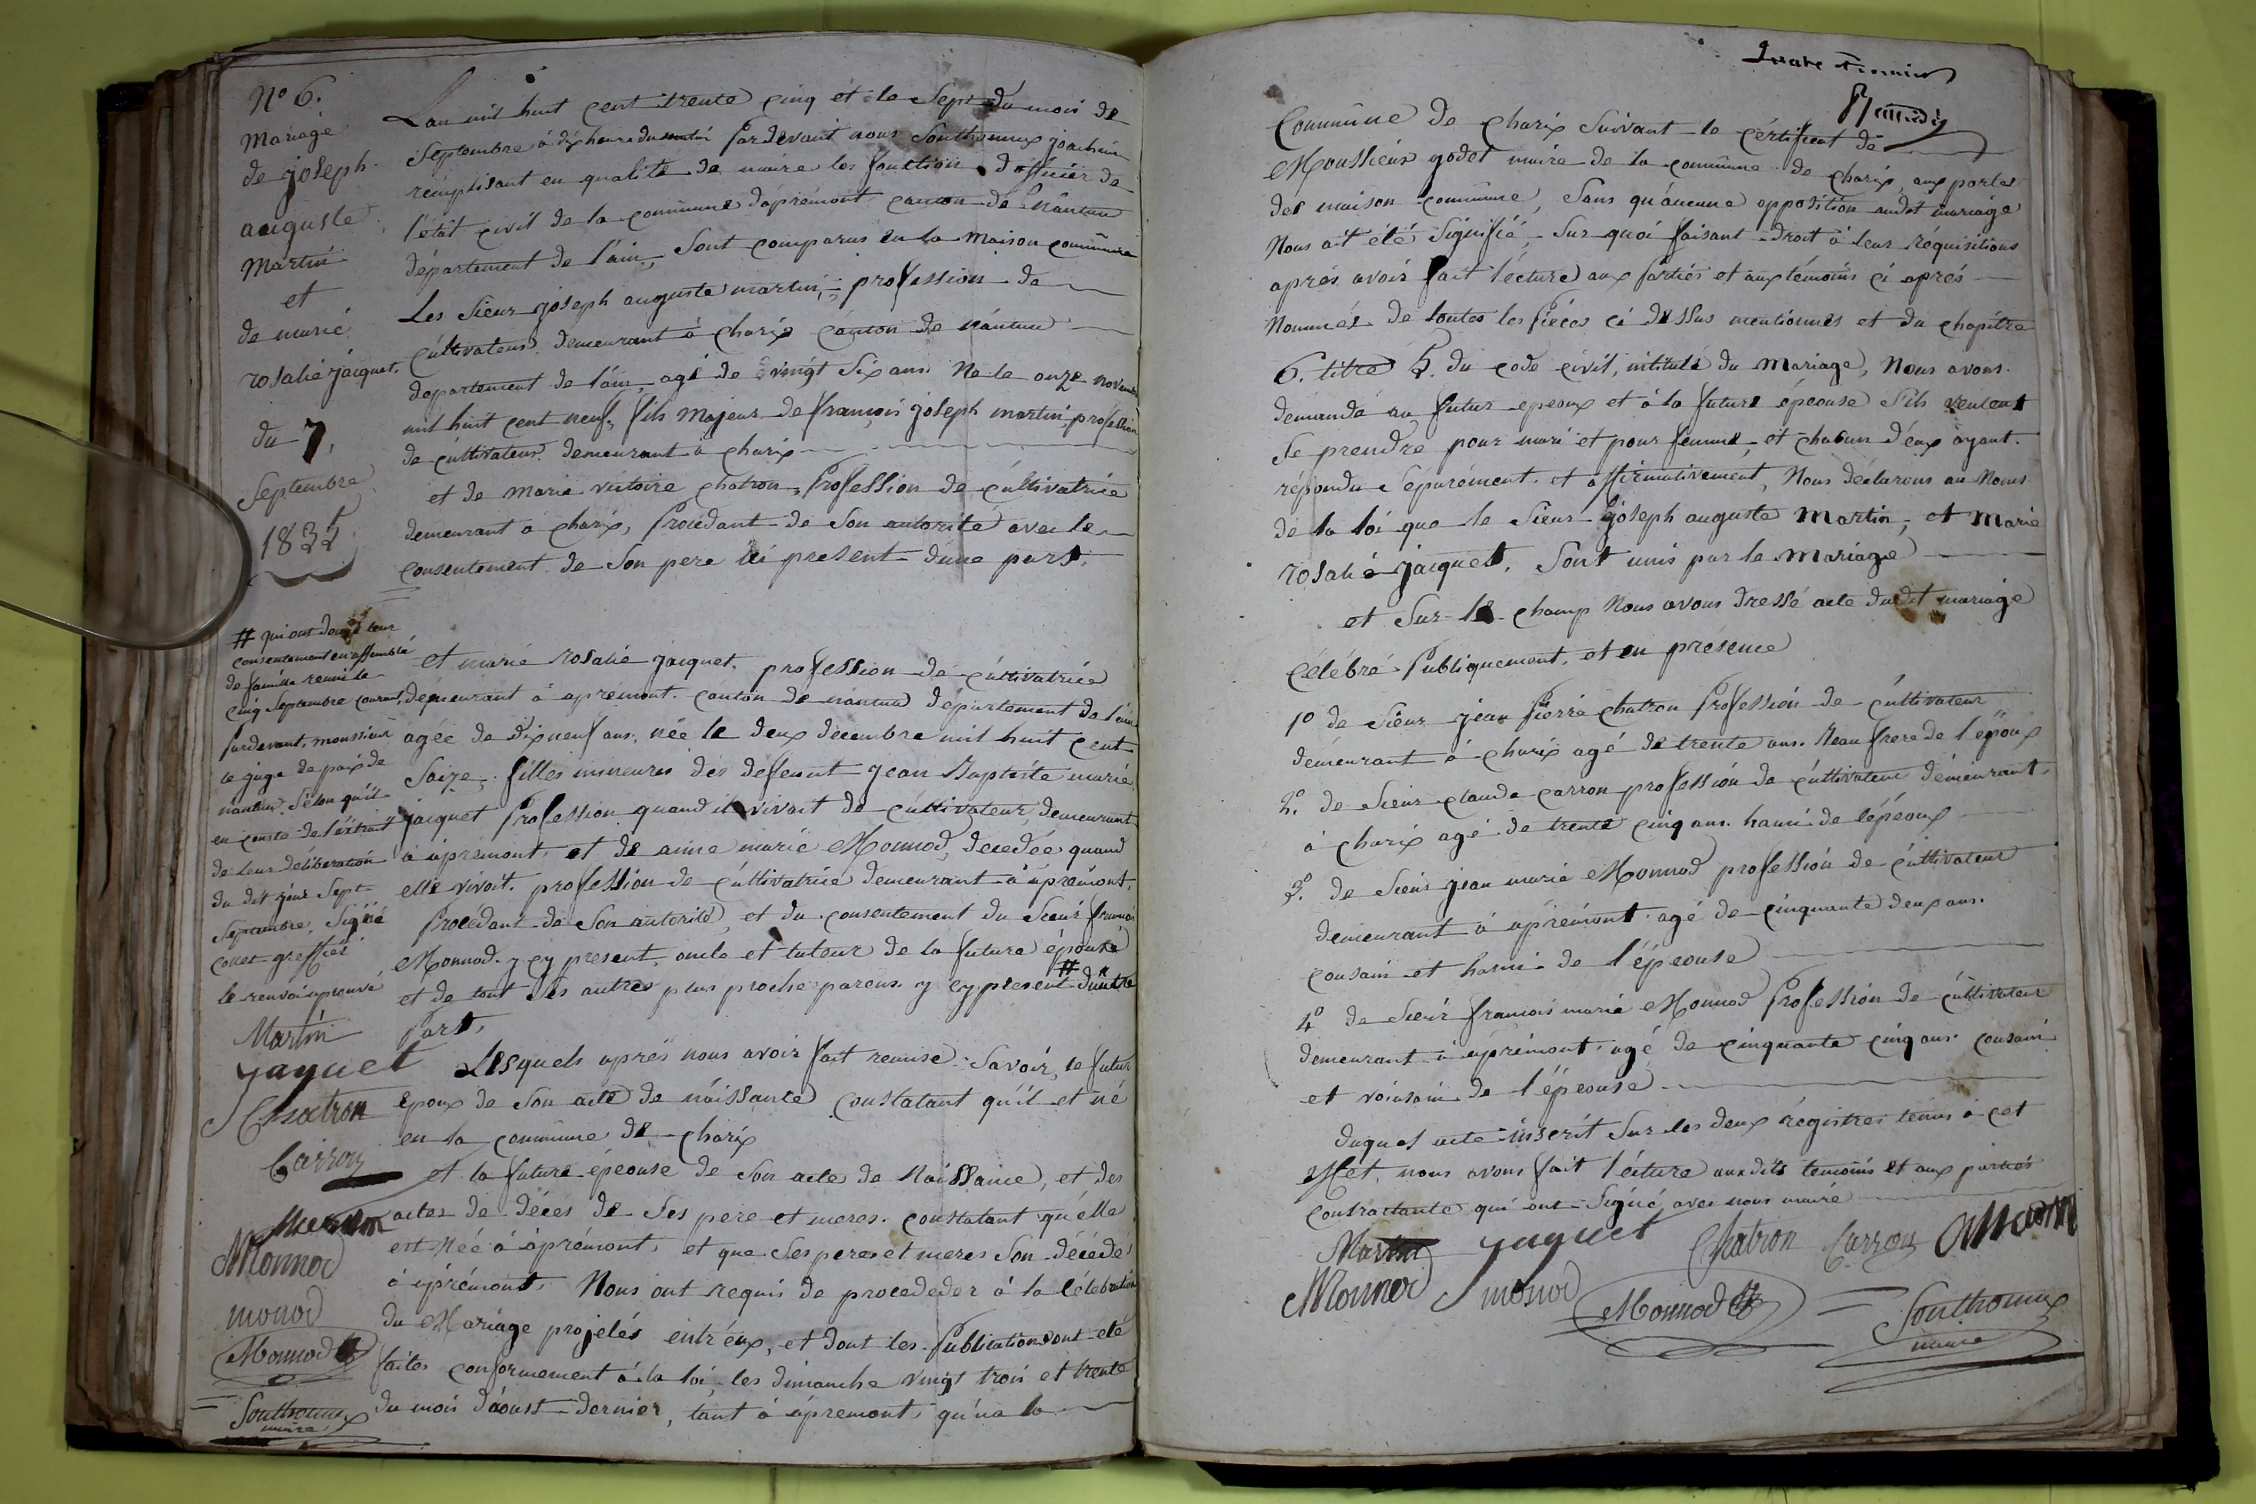 N.o 6.
Mariage
de joseph
auguste
Martin
et
de marié
rosalie jacquet.
du 7,
Septembre
1835
# qui ont donné leur
consentement en assemblé
de famille reuni le
cinq Septembre courant,
pardevant, moussieur
le juge de paix de
nantua. Sélon qu'il
en conste de l'éxtrait
de leur déliberation
du dit jour Sept
Septembre, Signé
greffiér
le renvoi aprouvé
Martin
Jaquet
Chatron
Carron
Monnod
monod
Monnod
Southonnax
maire
L'an mil huit cent trente cinq et le Sept du mois de
Septembre à dix heure du matin Pardevant nous Southonnax joachim
rémplisant en qualité de maire les fonction d'officiér de
l'état civil de la commune d'aprémont canton de Nantua
département de l'ain, Sont comparus en la Maison commune
Les Sieur joseph auguste martin, profession de
cultivateur demeurant à charix canton de nantua
département de l'ain, agé de vingt Six ans Né le onze novembre
mil huit cent neuf, fils Majeur de françois joseph martin, profession
de cultivateur demeurant à charix
et de marie victoire chatron, Profession de cultivatrice
demeurant à charix, Procédant de Son autorité avec le
consentement de Son pere ici present d'une part.
et marié rosalié jacquet. profession de cultivatrice
démeurant à aprémont. canton de nantua département de l'ain
agée de dixneuf ans, née le deux décembre mil huit cent
Saize, filles mineures des deffunt jean Baptiste marié
jacquet Profession quand il vivoit de cultivateur, demeurant
à aprémont, et de anne marié Monnod, decedée quand
elle vivoit. profession de cultivatrice demeurant à aprémont.
Procédant de Son autorité, et du consentement du Sieur françois
Monnod. y cy present, oncle et tuteur de la future épouse
et de tout Ses autres plus proche parens. y cy present # d'autre
Part,
Lesquels aprés nous avoir fait remise Savoir, le futur
époux de Son acte de naissance constatant qu'il et né
en la commune de charix
et la future épeouse de Son acte de Naissance, et des
actes de décés de Ses pere et meres. constatant qu'elle
est Née à aprémont, et que Ses peres et meres Son décédés
à aprémont. Nous ont requis de procededer à la célébration
du Mariage projetés entr'eux, et dont les Publication sont été
faites conformement à la loi, les dimanche vingt trois et trente
du mois d'aoust dernier, tant à aprémont, qu'na la
Commune de charix Suivant le certificat de
Moussieur godet maire de la commune de charix, aux portes
des maison commune, Sans qu'aucune opposition audit mariage
Nous ait été Signifié, Sur quoi faisant droit à leur réquisitions
aprés avoir fait lécture aux partiés et aux témoins ci aprés
Nommés de toutes les Piéces ci dessus mentionnés et du chapitre
6. titre 5. du code civil, intitulé du Mariage, Nous avons
demandé au futur epeoux et à la future épeouse S'ils veulent
Se prendre pour mari et pour femme, et chacun d'eux ayant
répondu Séparément et affirmativement, Nous déclarons au Nom
de la loi que le Sieur joseph auguste Martin, et Marie
rosalié jacquet. Sont unis par le Mariage
et Sur le champ Nous avons dressé acte dudit mariage
Célébré Publiquement, et en présence
1.o de Sieur jean Pierre chatron Profession de cultivateur
demeurant à charix agé de trente ans. Beau frere de l'époux
2.o de Sieur claude carron profession de cultivateur démeurant
à charix agé de trente cinq ans. hami de l'épeoux
3.o de Sieur jean marié Monnod profession de cultivateur
demeurant à aprémont agé de cinquante deux ans.
cousain et hami de l'épeouse
4.o de Sieur francois marié Monnod Profession de cultivateur
demeurant à aprémont agé de cinquante cinq ans cousain
et voiasain de l'épeouse
duquel acte inscrit Sur les deux régistres tenus à cet
effet, nous avons fait lécture auxdits temoins et aux parties
contractante qui ont Signé avec nous maire
Martin Jaquet Chatron Carron
Monnod monod Monnod Southonnax
maire